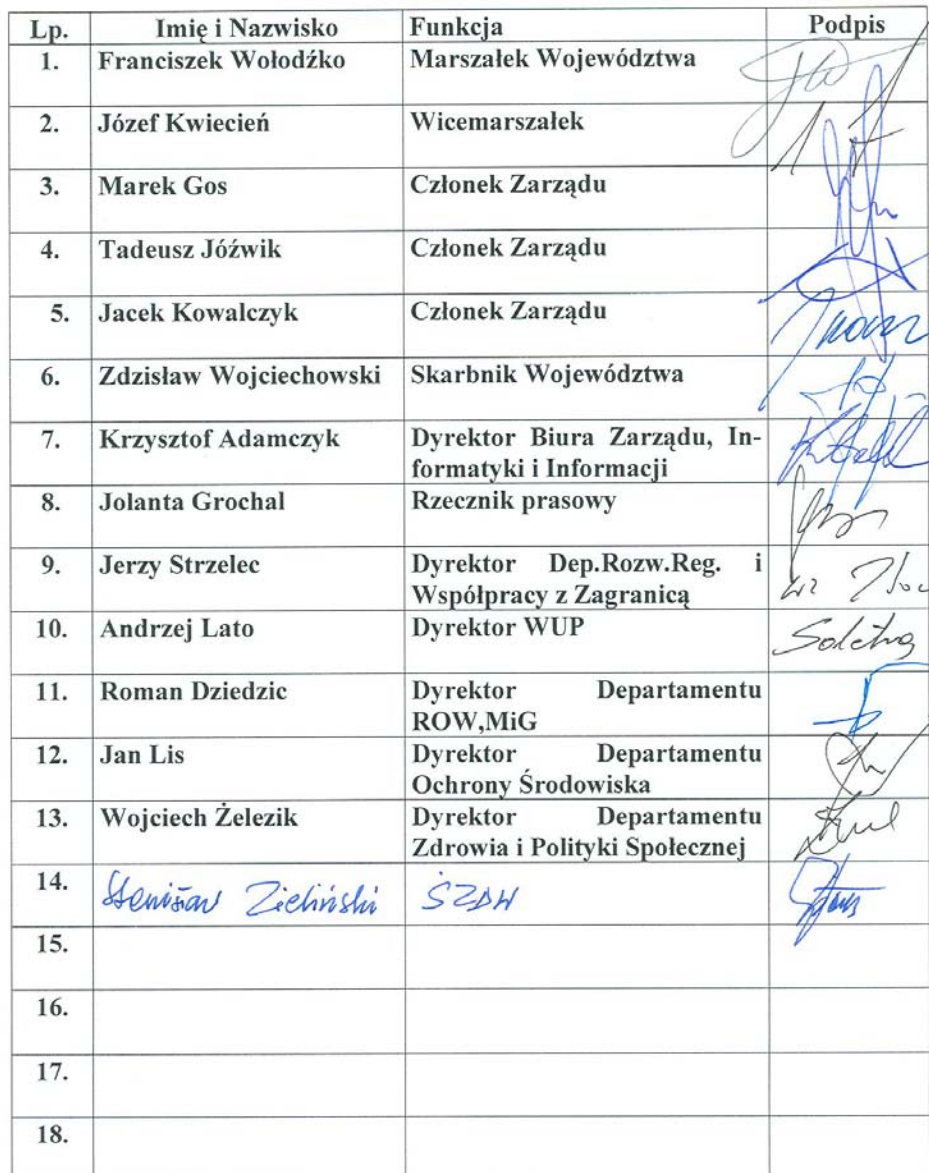 Lp. Imię i Nazwisko Funkcja Podpis
1. Franciszek Wołodźko Marszałek Województwa
2. Józef Kwiecień Wicemarszałek
3. Marek Gos Członek Zarządu
4. Tadeusz Jóźwik Członek Zarządu
5. Jacek Kowalczyk Członek Zarządu
6. Zdzisław Wojciechowski Skarbnik Województwa
7. Krzysztof Adamczyk Dyrektor Biura Zarządu, In-
formatyki i Informacji
8. Jolanta Grochal Rzecznik prasowy
9. Jerzy Strzelec Dyrektor Dep.Rozw.Reg. i
Współpracy z Zagranicą
10. Andrzej Lato Dyrektor WUP
11. Roman Dziedzic Dyrektor Departamentu
ROW,MiG
12. Jan Lis Dyrektor Departamentu
Ochrony Środowiska
13. Wojciech Żelezik Dyrektor Departamentu
Zdrowia i Polityki Społecznej
14. Stanisław Zieliński ŚZDW
15.
16.
17.
18.